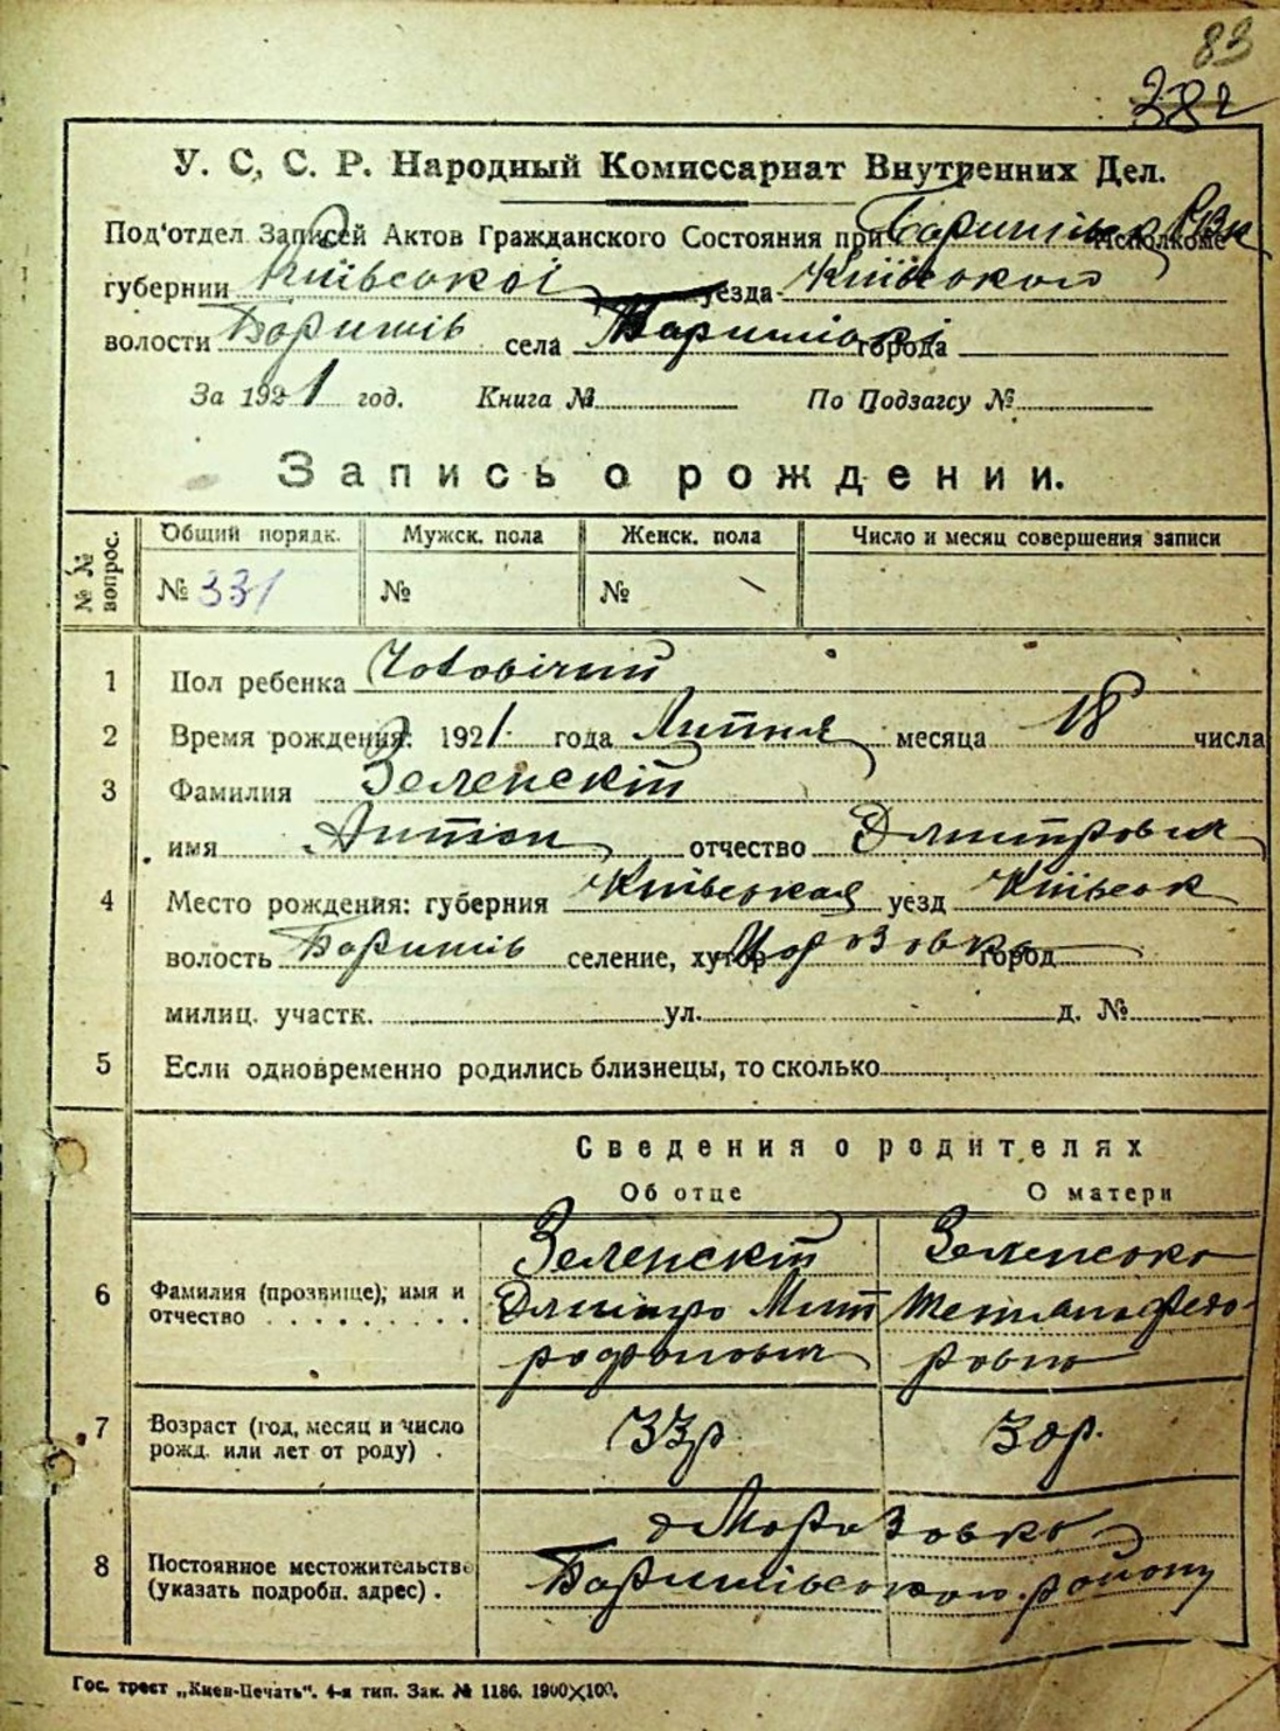 83
382
У. С. С. Р. Народный Комиссариат Внутренних Дел.
Под'отдел Записей Актов Гражданского Состояния при Баришівск РВК Исполкоме
губернии Київської уезда Київского
волости Баришів села Баришівкі города
За 1921 год. Книга № По Подзагсу №
Запись о рождении.
№ № вопрос.
Общий порядк. Мужск. пола Женск. пола Число и месяц совершения записи
№ 331 № №
1 Пол ребенка Чоловічий
2 Время рождения: 1921 года Липня месяца 18 числа
3 Фамилия Зеленскій
имя Антон отчество Дмитрович
4 Место рождения: губерния Київская уезд Київськ
волость Баришів селение, хутор Морозовка город
милиц. участк. ул. д. №
5 Если одновременно родились близнецы, то сколько
Сведения о родителях
Об отце О матери
6 Фамилия (прозвище), имя и отчество
Зеленскій Зеленсько
Дмитро Мит Тетяна Федо-
рофанович ровна
7 Возраст (год, месяц и число рожд. или лет от роду) .
33р. 30р.
8 Постоянное местожительство (указать подробн. адрес) .
Морозовка
Баришівского району
Гос. трест „Киев-Печать". 4-я тип. Зак. № 1186. 1900×100.